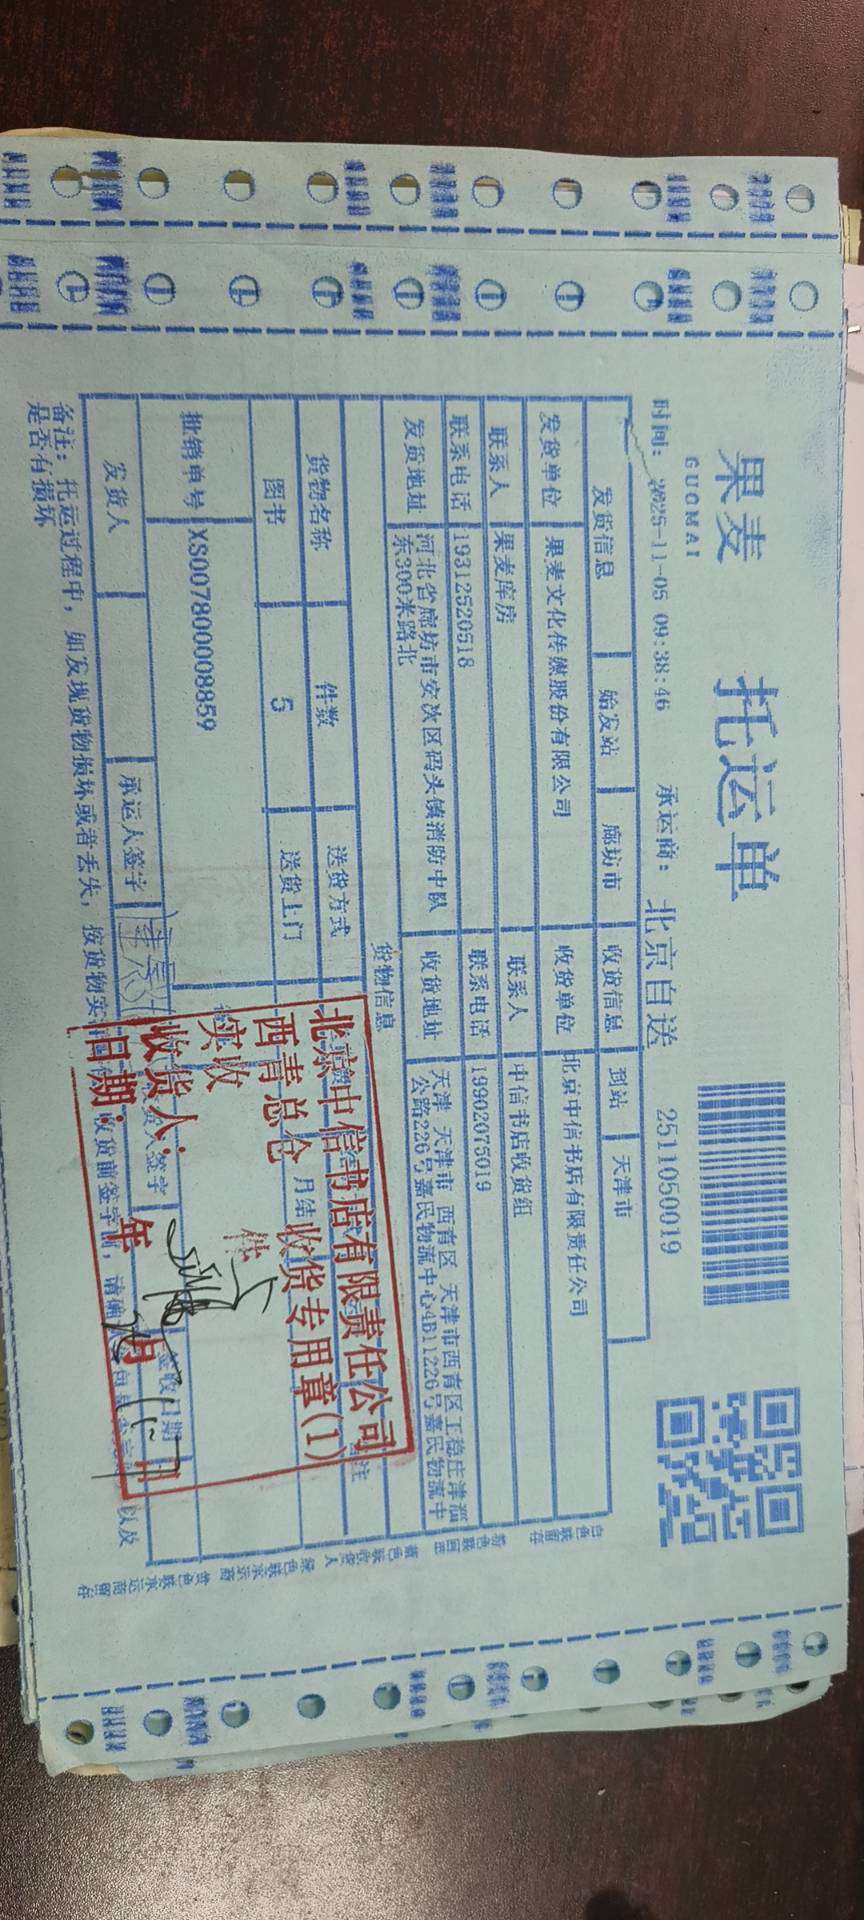 果麦 托运单
GUOMAI
时间: 2025-11-05 09:38:46 承运商: 北京自送 2511050019
发货信息 始发站 廊坊市 收货信息 到站 天津市
发货单位 果麦文化传媒股份有限公司 收货单位 北京中信书店有限责任公司
联系人 果麦库房 联系人 中信书店收货组
联系电话 19312520518 联系电话 19902075019
发货地址 河北省廊坊市安次区码头镇消防中队东300米路北 收货地址 天津 天津市 西青区 天津市西青区王稳庄津淄公路226号嘉民物流中心4B11226号嘉民物流中
货物信息
货物名称 件数 送货方式
图书 5 送货上门 月结
批销单号 XS007800008859
发货人 承运人签字 签收日期
备注: 托运过程中, 如发现货物损坏或者丢失, 按货物实
收货前签字前, 请确
以及
是否有损坏
北京中信书店有限责任公司
西青总仓 收货专用章(1)
实收 件
收货人:
日期: 年 月 日
白色联留存
粉色联回单
蓝色联收货人
绿色联承运商
黄色联承运商留存